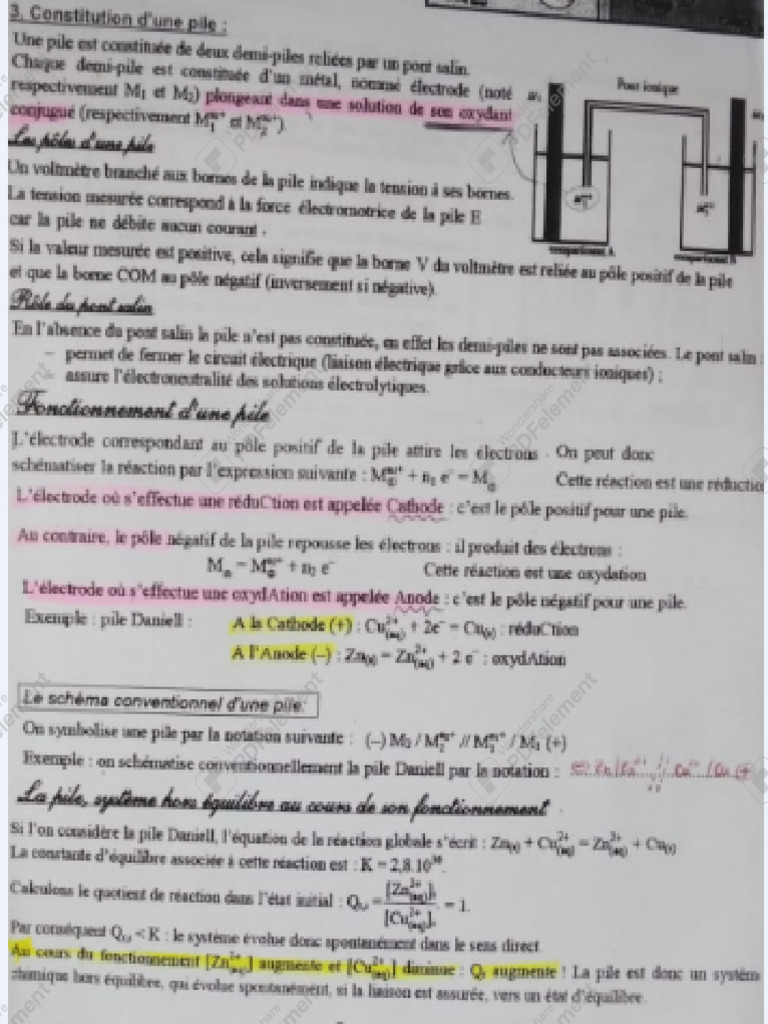 3. Constitution d'une pile :
Une pile est constituée de deux demi-piles reliées par un pont salin.
Chaque demi-pile est constituée d'un métal, nommé électrode (noté
respectivement M₁ et M₂) plongeant dans une solution de son oxydant
conjugué (respectivement M₁ⁿ¹⁺ et M₂ⁿ²⁺).
Pont ionique
compartiment A
compartiment B
Les pôles d'une pile
Un voltmètre branché aux bornes de la pile indique la tension à ses bornes.
La tension mesurée correspond à la force électromotrice de la pile E
car la pile ne débite aucun courant .
Si la valeur mesurée est positive, cela signifie que la borne V du voltmètre est reliée au pôle positif de la pile
et que la borne COM au pôle négatif (inversement si négative).
Rôle du pont salin
En l'absence du pont salin la pile n'est pas constituée, en effet les demi-piles ne sont pas associées. Le pont salin :
– permet de fermer le circuit électrique (liaison électrique grâce aux conducteurs ioniques) ;
assure l'électroneutralité des solutions électrolytiques.
Fonctionnement d'une pile
L'électrode correspondant au pôle positif de la pile attire les électrons . On peut donc
schématiser la réaction par l'expression suivante : M₁ⁿ¹⁺ + n₁ e⁻ = M Cette réaction est une réductio
L'électrode où s'effectue une réduCtion est appelée Cathode : c'est le pôle positif pour une pile.
Au contraire, le pôle négatif de la pile repousse les électrons : il produit des électrons :
M = M + n₂ e⁻ Cette réaction est une oxydation
L'électrode où s'effectue une oxydAtion est appelée Anode : c'est le pôle négatif pour une pile.
Exemple : pile Daniell : A la Cathode (+) : Cu²⁺(aq) + 2e⁻ = Cu(s) : réduCtion
A l'Anode (–) : Zn(s) = Zn²⁺(aq) + 2 e⁻ : oxydAtion
Le schéma conventionnel d'une pile:
On symbolise une pile par la notation suivante : (–) M₂ / M₂ⁿ²⁺ // M₁ⁿ¹⁺ / M₁ (+)
Exemple : on schématise conventionnellement la pile Daniell par la notation :
La pile, système hors équilibre au cours de son fonctionnement .
Si l'on considère la pile Daniell, l'équation de la réaction globale s'écrit : Zn(s) + Cu²⁺(aq) = Zn²⁺(aq) + Cu(s)
La constante d'équilibre associée à cette réaction est : K = 2,8.10
Calculons le quotient de réaction dans l'état initial : Qr,i = [Zn²⁺(aq)]i / [Cu²⁺(aq)]i = 1.
Par conséquent Qr,i < K : le système évolue donc spontanément dans le sens direct.
Au cours du fonctionnement [Zn²⁺(aq)] augmente et [Cu²⁺(aq)] diminue : Qr augmente ! La pile est donc un systèm
chimique hors équilibre, qui évolue spontanément, si la liaison est assurée, vers un état d'équilibre.
Wondershare
PDFelement